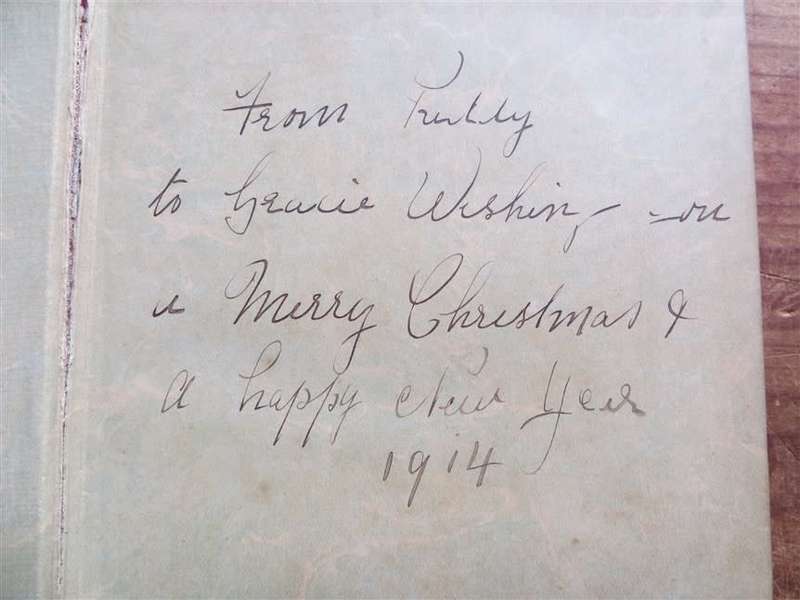 From
to Gracie Wishing you
a Merry Christmas &
a happy New Year
1914